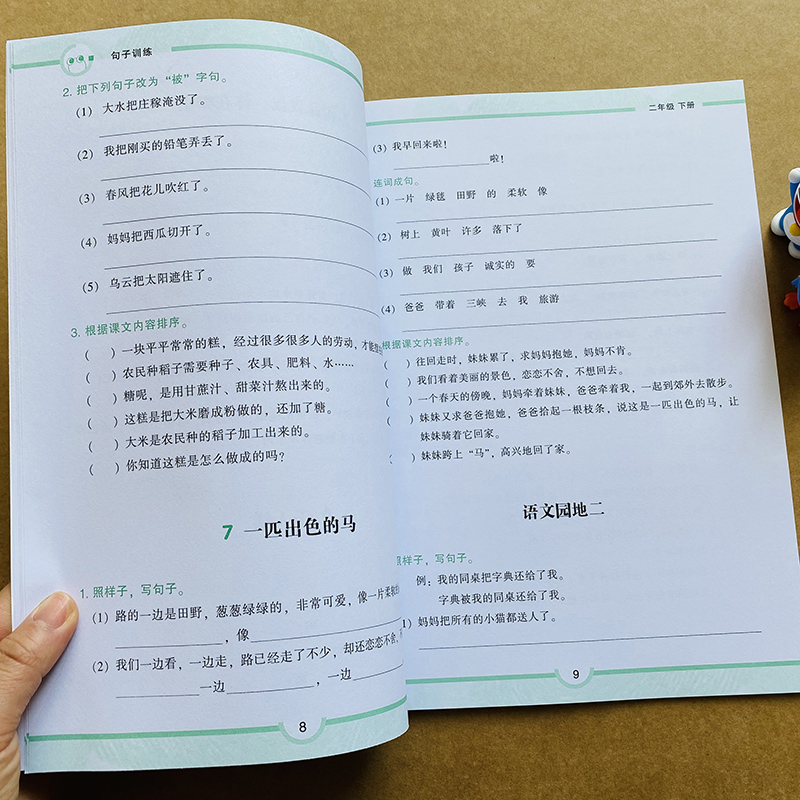 句子训练
2. 把下列句子改为“被”字句。
(1) 大水把庄稼淹没了。
(2) 我把刚买的铅笔弄丢了。
(3) 春风把花儿吹红了。
(4) 妈妈把西瓜切开了。
(5) 乌云把太阳遮住了。
3. 根据课文内容排序。
( ) 一块平平常常的糕，经过很多很多人的劳动，才能
( ) 农民种稻子需要种子、农具、肥料、水……
( ) 糖呢，是用甘蔗汁、甜菜汁熬出来的。
( ) 这糕是把大米磨成粉做的，还加了糖。
( ) 大米是农民种的稻子加工出来的。
( ) 你知道这糕是怎么做成的吗？
7 一匹出色的马
1. 照样子，写句子。
(1) 路的一边是田野，葱葱绿绿的，非常可爱，像一片柔软
，像
(2) 我们一边看，一边走，路已经走了不少，却还恋恋不舍，
一边，一边
8
二年级 下册
(3) 我早回来啦！
啦！
连词成句。
(1) 一片 绿毯 田野 的 柔软 像
(2) 树上 黄叶 许多 落下了
(3) 做 我们 孩子 诚实的 要
(4) 爸爸 带着 三峡 去 我 旅游
根据课文内容排序。
) 往回走时，妹妹累了，求妈妈抱她，妈妈不肯。
) 我们看着美丽的景色，恋恋不舍，不想回去。
) 一个春天的傍晚，妈妈牵着妹妹，爸爸牵着我，一起到郊外去散步。
) 妹妹又求爸爸抱她，爸爸拾起一根枝条，说这是一匹出色的马，让
妹妹骑着它回家。
) 妹妹跨上“马”，高兴地回了家。
语文园地二
照样子，写句子。
例：我的同桌把字典还给了我。
字典被我的同桌还给了我。
1) 妈妈把所有的小猫都送人了。
9